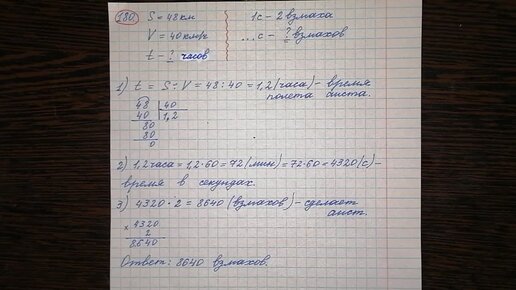 180.
S = 48 км
1с - 2 взмаха
V = 40 км/ч
...с - ? взмахов
t - ? часов
1) t = S : V = 48 : 40 = 1,2 (часа) - время
полета аиста.
48 40
40 1,2
80
80
0
2) 1,2 часа = 1,2·60 = 72 (мин) = 72·60 = 4320 (с) -
время в секундах.
3) 4320 · 2 = 8640 (взмахов) - сделает
аист.
× 4320
2
8640
Ответ: 8640 взмахов.